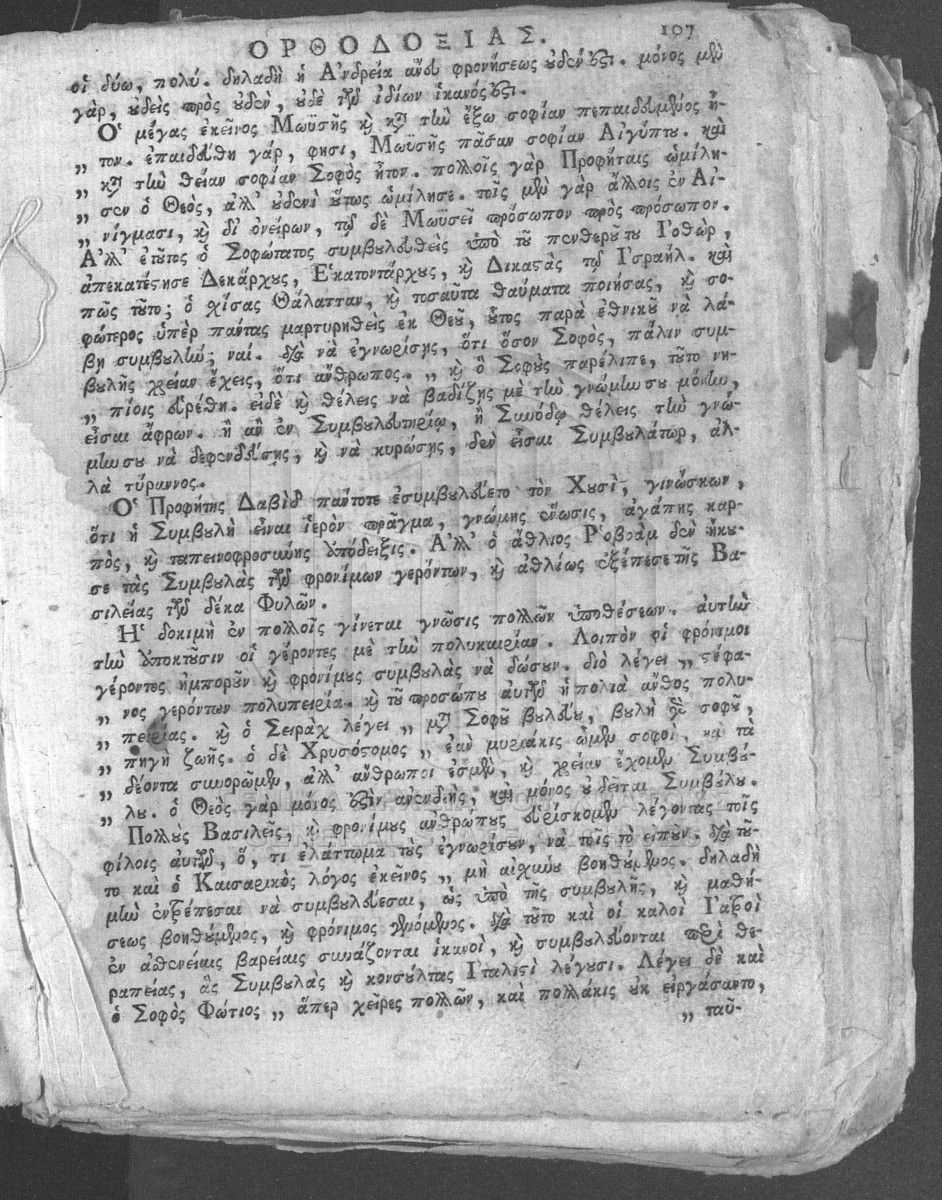 ΟΡΘΟΔΟΞΙΑΣ. 107
οἱ δύω, πολύ. δηλαδὴ ἡ Ἀνδρεία ἄνευ φρονήσεως οὐδέν ἐστι. μόνος μὲν
γὰρ, οὐδεὶς πρὸς οὐδὲν, οὐδὲ τῶν ἰδίων ἱκανός ἐστι.
Ὁ μέγας ἐκεῖνος Μωϋσῆς καὶ κατὰ τὴν ἔξω σοφίαν πεπαιδευμένος ἦ-
„ τον. ἐπαιδεύθη γάρ, φησι, Μωϋσῆς πᾶσαν σοφίαν Αἰγύπτου. καὶ
„ κατὰ τὴν θείαν σοφίαν Σοφὸς ἦτον. πολλοῖς γὰρ Προφήταις ὡμίλη-
„ σεν ὁ Θεὸς, ἀλλ' οὐδενὶ οὕτως ὡμίλησε. τοῖς μὲν γὰρ ἄλλοις ἐν Αἰ-
„ νίγμασι, καὶ δι' ὀνείρων, τῷ δὲ Μωϋσεῖ πρόσωπον πρὸς πρόσωπον.
Ἀλλ' ἐτοῦτος ὁ Σοφώτατος συμβουλευθεὶς ὑπὸ τοῦ πενθεροῦ του Ἰοθὼρ,
ἀπεκατέστησε Δεκάρχους, Ἑκατοντάρχους, καὶ Δικαστὰς τῷ Ἰσραήλ. καὶ
πῶς τοῦτο; ὁ χίσας Θάλατταν, καὶ τοσαῦτα θαύματα ποιήσας, καὶ σο-
φώτερος ὑπὲρ πάντας μαρτυρηθεὶς ἐκ Θεοῦ, οὗτος παρὰ ἐθνικοῦ νὰ λά-
βῃ συμβουλήν; ναί. διὰ νὰ ἐγνωρίσῃς, ὅτι ὅσον Σοφὸς, πάλιν συμ-
βουλῆς χρείαν ἔχεις, ὅτι ἄνθρωπος. „ καὶ ὃ Σοφὸς παρέλιπε, τοῦτο νη-
„ πίοις εὑρέθη. εἰδὲ καὶ θέλεις νὰ βαδίζῃς μὲ τὴν γνώμην σου μόνην,
εἶσαι ἄφρων. ἢ ἂν ἐν Συμβουλευτηρίῳ, ἢ Συνόδῳ θέλεις τὴν γνώ-
μην σου νὰ δεφενδεύσῃς, καὶ νὰ κυρώσῃς, δὲν εἶσαι Συμβουλάτωρ, ἀλ-
λὰ τύραννος.
Ὁ Προφήτης Δαβὶδ πάντοτε ἐσυμβουλεύετο τὸν Χουσὶ, γινώσκων,
ὅτι ἡ Συμβουλὴ εἶναι ἱερὸν πρᾶγμα, γνώμης ἕνωσις, ἀγάπης καρ-
πὸς, καὶ ταπεινοφροσύνης ὑπόδειξις. Ἀλλ' ὁ ἄθλιος Ῥοβοὰμ δὲν ἤκου-
σε τὰς Συμβουλὰς τῶν φρονίμων γερόντων, καὶ ἀθλίως ἐξέπεσε τῆς Βα-
σιλείας τῶν δέκα Φυλῶν.
Ἡ δοκιμὴ ἐν πολλοῖς γίνεται γνῶσις πολλῶν ὑποθέσεων. αὐτὴν
τὴν ἀποκτοῦσιν οἱ γέροντες μὲ τὴν πολυκαιρίαν. Λοιπὸν οἱ φρόνιμοι
γέροντες ἠμποροῦν καὶ φρονίμους συμβουλὰς νὰ δώσουν. διὸ λέγει „ στέφα-
„ νος γερόντων πολυπειρία. καὶ τοῦ προσώπου αὐτῶν ἡ πολιὰ ἄνθος πολυ-
„ πειρίας. καὶ ὁ Σειρὰχ λέγει „ μετὰ Σοφοῦ βουλεύου, βουλὴ γὰρ σοφοῦ,
„ πηγὴ ζωῆς. ὁ δὲ Χρυσόστομος „ ἐὰν μυριάκις ὦμεν σοφοὶ, καὶ τὰ
„ δέοντα συνορῶμεν, ἀλλ' ἄνθρωποι ἐσμὲν, καὶ χρείαν ἔχομεν Συμβού-
„ λου. ὁ Θεὸς γὰρ μόνος ἐστὶν ἀνενδεὴς, καὶ μόνος οὐ δεῖται Συμβούλου.
Πολλοὺς Βασιλεῖς, καὶ φρονίμους ἀνθρώπους εὑρίσκομεν λέγοντας τοῖς
φίλοις αὐτῶν, ὅ, τι ἐλάττωμα τοὺς ἐγνωρίσουν, νὰ τοῖς τὸ εἰποῦν. διὰ τοῦ-
το καὶ ὁ Καισαρικὸς λόγος ἐκεῖνος „ μὴ αἰχύνου βοηθούμενος. δηλαδὴ
μὴν ἐντρέπεσαι νὰ συμβουλεύεσαι, ὡς ὑπὸ τῆς συμβουλῆς, καὶ μαθή-
σεως βοηθούμενος, καὶ φρόνιμος γενόμενος. διὰ τοῦτο καὶ οἱ καλοὶ Ἰατροὶ
ἐν ἀσθενείαις βαρείαις συνάζονται ἱκανοὶ, καὶ συμβουλεύονται περὶ θε-
ραπείας, ἃς Συμβουλὰς καὶ κονσούλτας Ἰταλιστὶ λέγουσι. Λέγει δὲ καὶ
ὁ Σοφὸς Φώτιος „ ἅπερ χεῖρες πολλῶν, καὶ πολλάκις οὐκ εἰργάσαντο,
„ ταῦ-